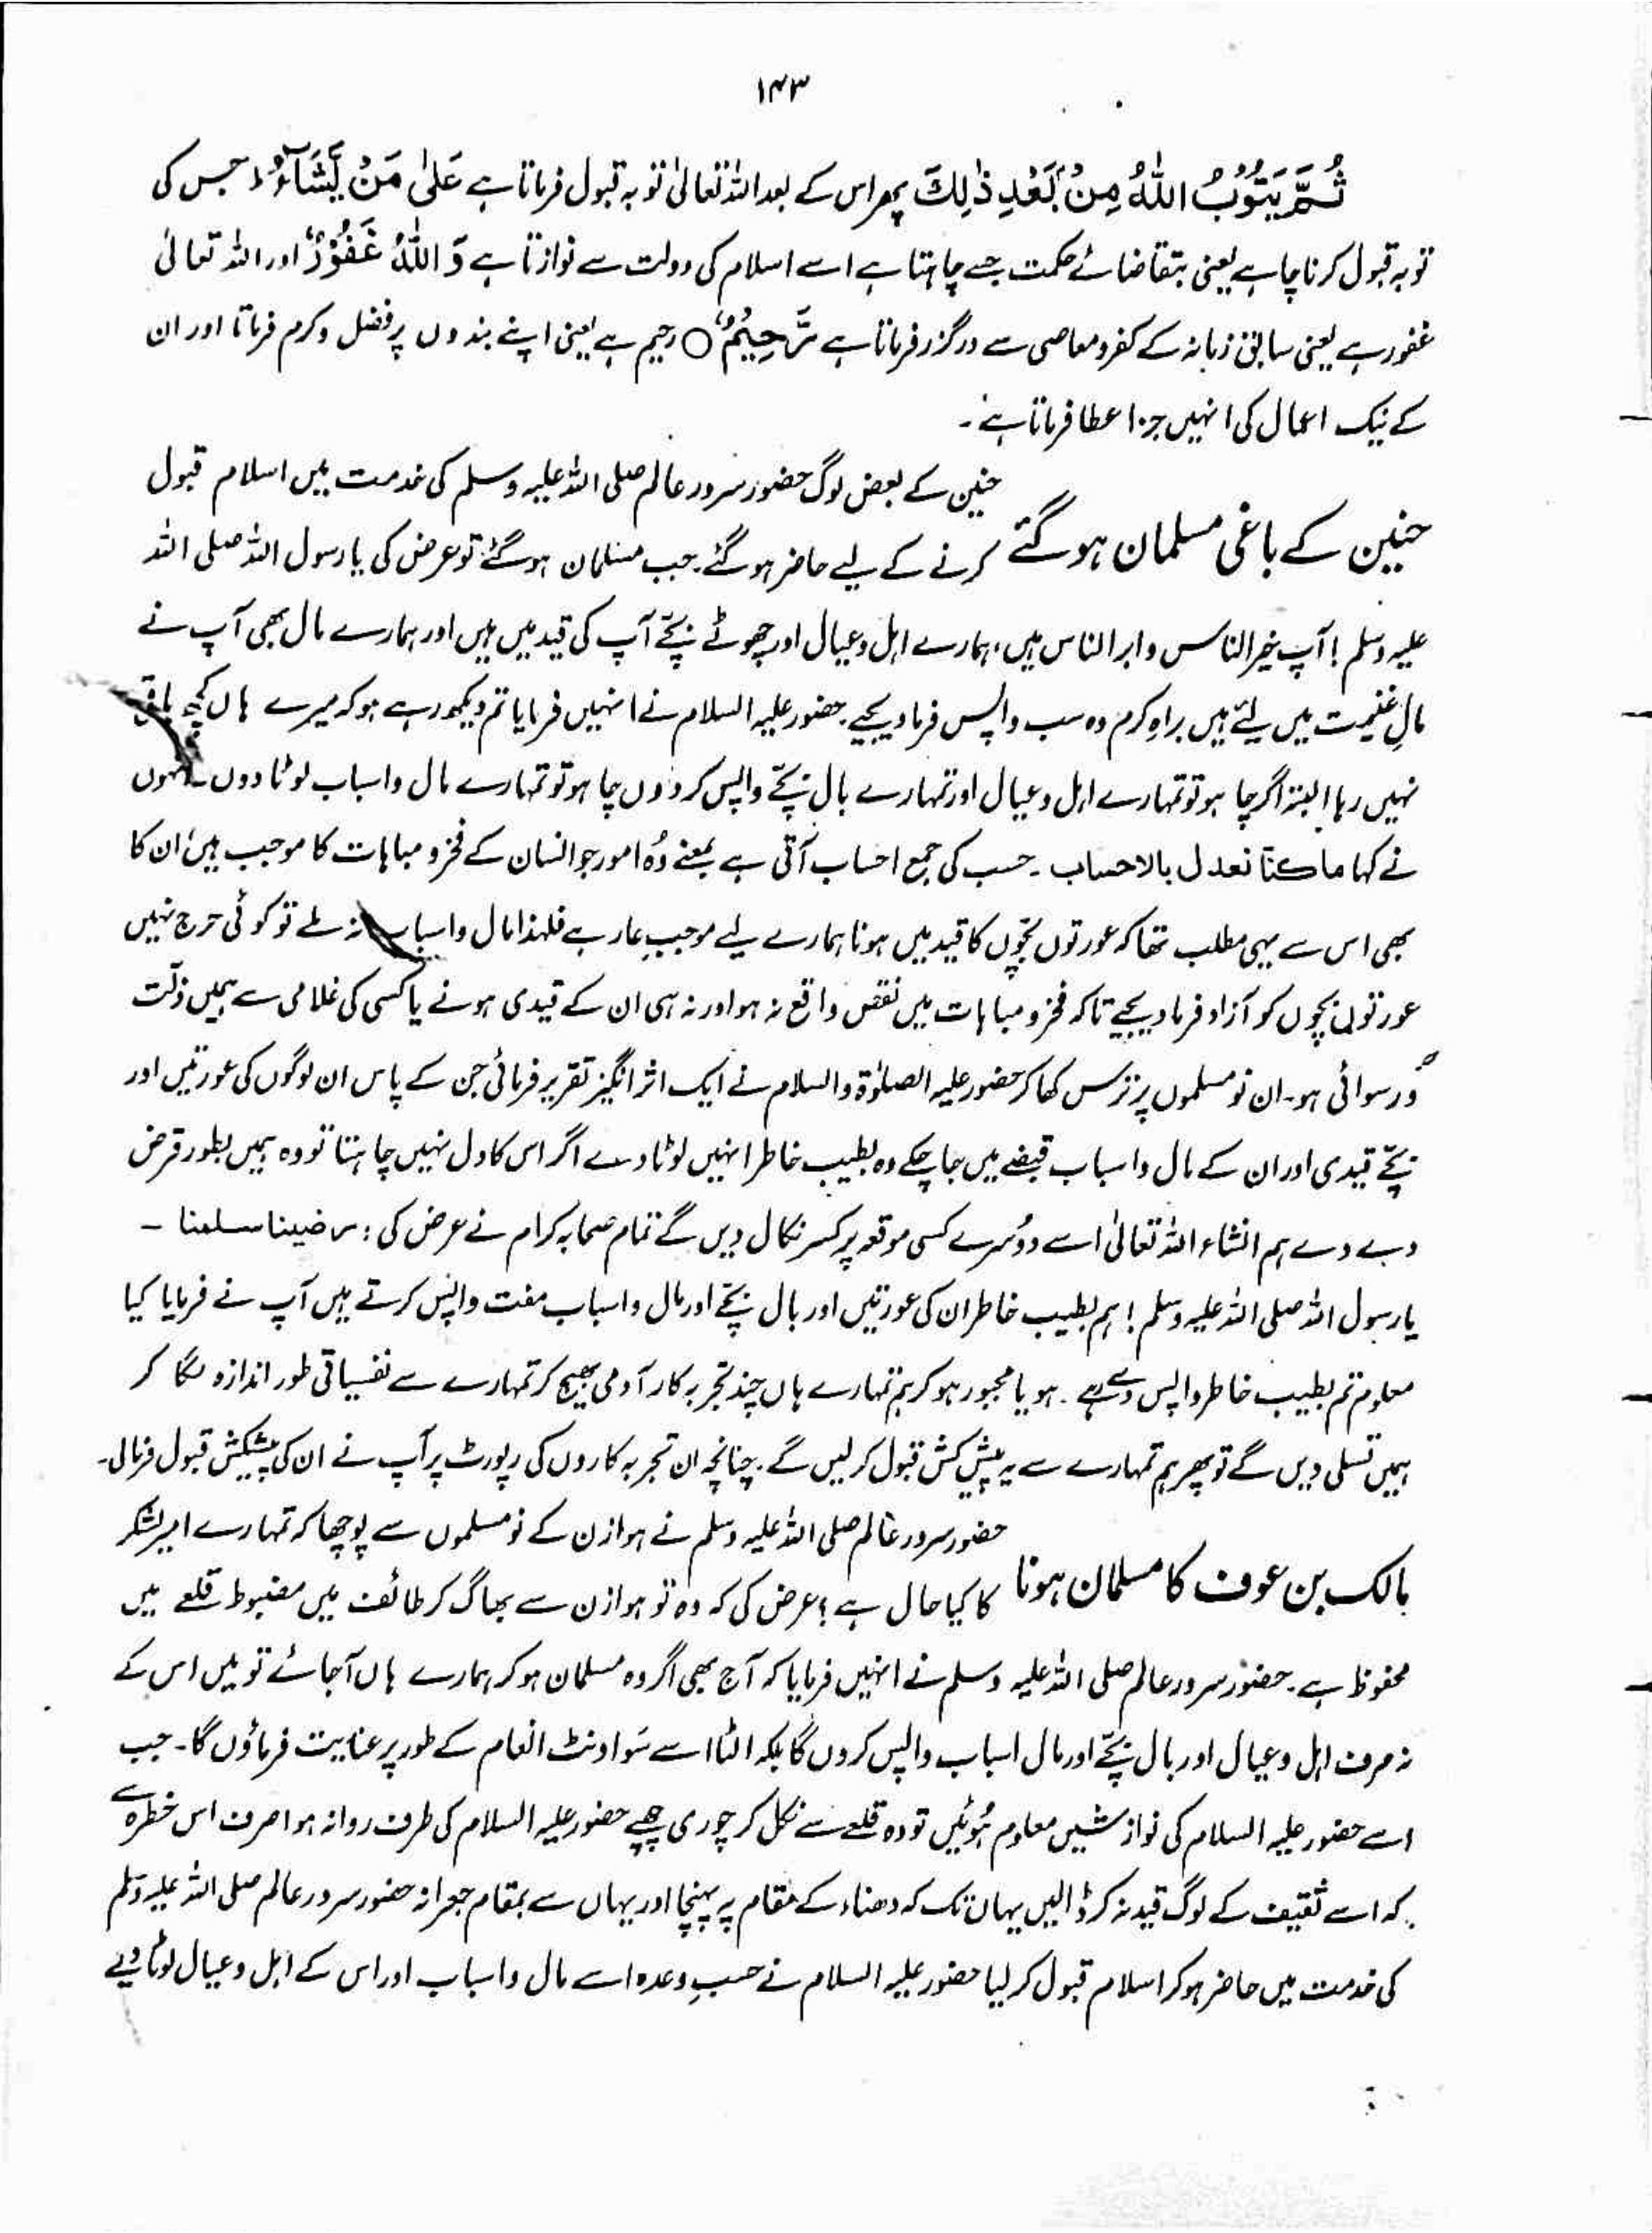 ۱۴۳
ثُمَّ يَتُوْبُ اللّٰهُ مِنْۢ بَعْدِ ذٰلِكَ پھر اس کے بعد اللہ تعالیٰ توبہ قبول فرماتا ہے عَلٰى مَنْ يَّشَآءُ ؕ جس کی
توبہ قبول کرنا چاہے یعنی بتقاضائے حکمت جسے چاہتا ہے اسے اسلام کی دولت سے نوازتا ہے وَ اللّٰهُ غَفُوْرٌ اور اللہ تعالیٰ
غفور ہے یعنی سابق زمانہ کے کفر و معاصی سے درگزر فرماتا ہے رَّحِيْمٌ ○ رحیم ہے یعنی اپنے بندوں پر فضل و کرم فرماتا اور ان
کے نیک اعمال کی انہیں جزا عطا فرماتا ہے ۔
حنین کے باغی مسلمان ہو گئے
حنین کے بعض لوگ حضور سرور عالم صلی اللہ علیہ وسلم کی خدمت میں اسلام قبول
کرنے کے لیے حاضر ہو گئے ۔ جب مسلمان ہو گئے تو عرض کی یا رسول اللہ صلی اللہ
علیہ وسلم ! آپ خیر الناس و ابر الناس ہیں ، ہمارے اہل و عیال اور چھوٹے بچّے آپ کی قید میں ہیں اور ہمارے مال بھی آپ نے
مالِ غنیمت میں لیے ہیں براہِ کرم وہ سب واپس فرما دیجیے ۔ حضور علیہ السلام نے انہیں فرمایا تم دیکھ رہے ہو کہ میرے ہاں کچھ باقی
نہیں رہا البتہ اگر چاہو تو تمہارے اہل و عیال اور تمہارے بال بچّے واپس کر دوں چاہو تو تمہارے مال و اسباب لوٹا دوں ۔ انہوں
نے کہا ما کنا نعدل بالاحساب ۔ حسب کی جمع احساب آتی ہے بمعنے وُہ امور جو انسان کے فخر و مباہات کا موجب ہیں ان کا
بھی اس سے یہی مطلب تھا کہ عورتوں بچّوں کا قید میں ہونا ہمارے لیے موجبِ عار ہے فلہذا مال و اسباب نہ ملے تو کوئی حرج نہیں
عورتوں بچوں کو آزاد فرما دیجیے تاکہ فخر و مباہات میں نقص واقع نہ ہو اور نہ ہی ان کے قیدی ہونے یا کسی کی غلامی سے ہمیں ذلّت
و رسوائی ہو ۔ ان نو مسلموں پر ترس کھا کر حضور علیہ الصلوٰۃ والسلام نے ایک اثر انگیز تقریر فرمائی جن کے پاس ان لوگوں کی عورتیں اور
بچّے قیدی اور ان کے مال و اسباب قبضے میں جا چکے وہ بطیب خاطر انہیں لوٹا دے اگر اس کا دل نہیں چاہتا تو وہ ہمیں بطور قرض
دے دے ہم انشاء اللہ تعالیٰ اسے دوُسرے کسی موقعہ پر کسر نکال دیں گے تمام صحابہ کرام نے عرض کی : رضینا سلمنا –
یا رسول اللہ صلی اللہ علیہ وسلم ! ہم بطیب خاطر ان کی عورتیں اور بال بچّے اور مال و اسباب مفت واپس کرتے ہیں آپ نے فرمایا کیا
معلوم تم بطیب خاطر واپس دے رہے ۔ ہو یا مجبور ہو کر ہم تمہارے ہاں چند تجربہ کار آدمی بھیج کر تمہارے سے نفسیاتی طور اندازہ لگا کر
ہمیں تسلی دیں گے تو پھر ہم تمہارے سے یہ پیش کش قبول کر لیں گے ۔ چنانچہ ان تجربہ کاروں کی رپورٹ پر آپ نے ان کی پیشکش قبول فرمالی ۔
مالک بن عوف کا مسلمان ہونا
حضور سرور عالم صلی اللہ علیہ وسلم نے ہوازن کے نو مسلموں سے پوچھا کہ تمہارے امیر لشکر
کا کیا حال ہے ؟ عرض کی کہ وہ تو ہوازن سے بھاگ کر طائف میں مضبوط قلعے میں
محفوظ ہے ۔ حضور سرور عالم صلی اللہ علیہ وسلم نے انہیں فرمایا کہ آج بھی اگر وہ مسلمان ہو کر ہمارے ہاں آجائے تو میں اس کے
نہ صرف اہل و عیال اور بال بچّے اور مال اسباب واپس کروں گا بلکہ الٹا اسے سَو اونٹ انعام کے طور پر عنایت فرماؤں گا ۔ جب
اسے حضور علیہ السلام کی نوازشیں معلوم ہُوئیں تو وہ قلعے سے نکل کر چوری چھپے حضور علیہ السلام کی طرف روانہ ہوا صرف اس خطرہ سے
کہ اسے ثقیف کے لوگ قید نہ کر ڈالیں یہاں تک کہ دھناء کے مقام پر پہنچا اور یہاں سے بمقام جعرانہ حضور سرور عالم صلی اللہ علیہ وسلم
کی خدمت میں حاضر ہو کر اسلام قبول کر لیا حضور علیہ السلام نے حسبِ وعدہ اسے مال و اسباب اور اس کے اہل و عیال لوٹا دیے